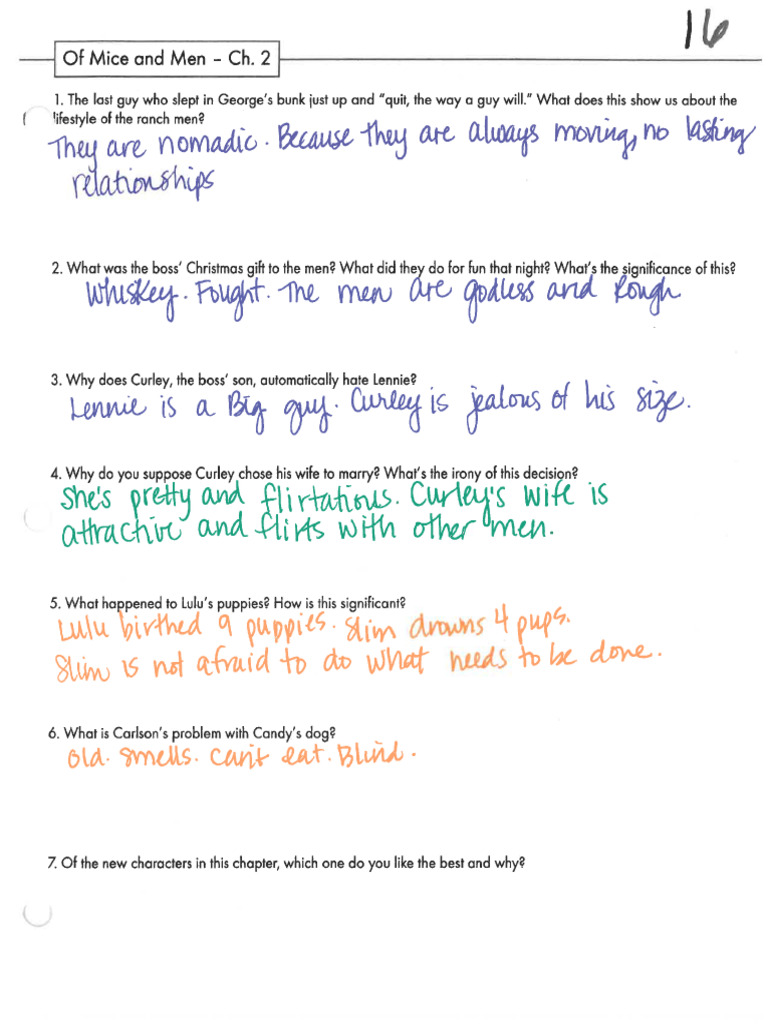 16
Of Mice and Men – Ch. 2
1. The last guy who slept in George's bunk just up and "quit, the way a guy will." What does this show us about the
lifestyle of the ranch men?
They are nomadic. Because they are always moving, no lasting
relationships
2. What was the boss' Christmas gift to the men? What did they do for fun that night? What's the significance of this?
Whiskey. Fought. The men are godless and Rough
3. Why does Curley, the boss' son, automatically hate Lennie?
Lennie is a Big guy. Curley is jealous of his size.
4. Why do you suppose Curley chose his wife to marry? What's the irony of this decision?
She's pretty and flirtatious. Curley's wife is
attractive and flirts with other men.
5. What happened to Lulu's puppies? How is this significant?
Lulu birthed 9 puppies. Slim drowns 4 pups.
Slim is not afraid to do what needs to be done.
6. What is Carlson's problem with Candy's dog?
Old. Smells. Can't eat. Blind.
7. Of the new characters in this chapter, which one do you like the best and why?